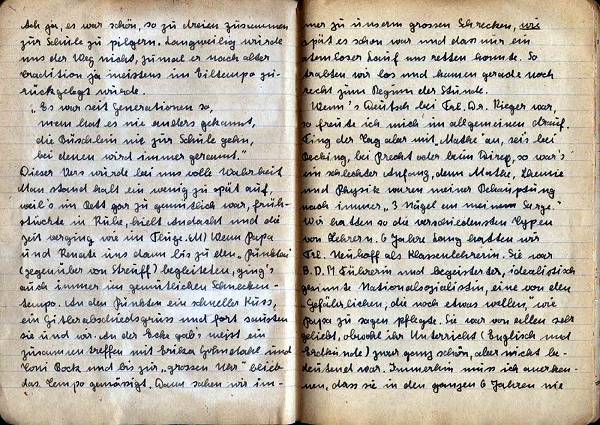 Ach ja, es war schön, so zu dreien zusammen
zur Schule zu pilgern. Langweilig wurde
uns der Weg nicht, zumal er nach alter
Tradition ja meistens im Eiltempo zu-
rückgelegt wurde.
„Es war seit Generationen so,
man hat es nie anders gekannt,
die Büschlein nie zur Schule gehn,
bei denen wird immer gerannt."
Dieser Vers wurde bei uns volle Wahrheit
Man stand halt ein wenig zu spät auf,
weil's im Bett gar zu gemütlich war, früh-
stückte in Ruhe, hielt Andacht und die
Zeit verging wie im Fluge. Wenn Papa
und Renate uns dann bis zu den Pünkten
(gegenüber von Streiff) begleiteten, ging's
auch immer im gemütlichen Schnecken-
tempo. An den Pünkten ein schneller Kuss,
ein Gitterabschiedsgruss und fort sausten
sie und wir. An der Ecke gab's meist ein
zusammentreffen mit Erika und
Toni Bock und bis zur „grossen Uhr" blieb
das Tempo gemässigt. Dann sahen wir im-
mer zu unserm grossen Schrecken, wie
spät es schon war und dass nur ein
atemloser Lauf uns retten konnte. So
trabten wir los und kamen gerade noch
recht zum Beginn der Stunde.
Wenn's Deutsch bei Frl. Dr. Rieger war,
so freute ich mich im allgemeinen drauf.
Fing der Tag aber mit „Mathe" an, sei's bei
Becking, bei Precht oder beim Direx, so war's
ein schlechter Anfang, denn Mathe, Chemie
und Physik waren meiner Behauptung
nach immer „3 Nägel an meinem Sarge."
Wir hatten so die verschiedensten Typen
von Lehrern. 6 Jahre lang hatten wir
Frl. Neuhoff als Klassenlehrerin. Sie war
B.D.M Führerin und begeisterte, idealistisch
gesinnte Nationalsozialistin, eine von den
„Gefährlichen, die noch etwas wollen," wie
Papa zu sagen pflegte. Sie war von allen sehr
geliebt, obwohl ihr Unterricht (Englisch und
Erdkunde) zwar ganz schön, aber nicht be-
deutend war. Immerhin muss ich anerken-
nen, dass sie in den ganzen 6 Jahren nie